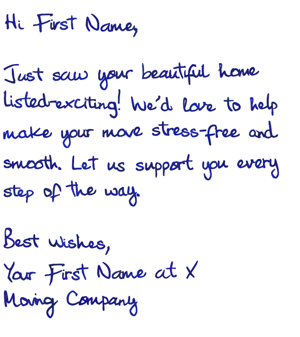 Hi First Name,
Just saw your beautiful home
listed-exciting! We'd love to help
make your move stress-free and
smooth. Let us support you every
step of the way.
Best wishes,
Your First Name at X
Moving Company